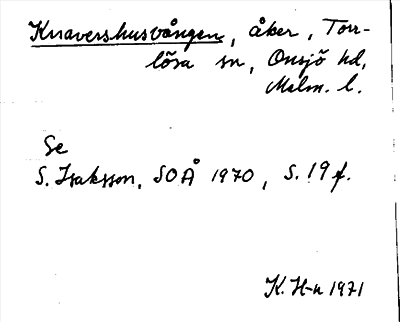 Knavershusvången, åker, Torr-
lösa sn, Onsjö hd,
Malm. l.
Se
S. Isaksson, SOÅ 1970, S. 19 f.
K. H-n 1971